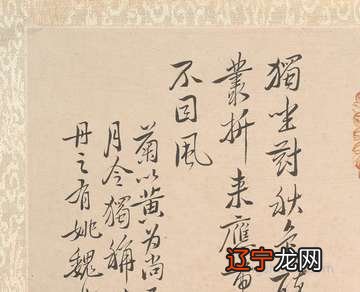 獨坐對秋色
叢折来應
不因風
菊以黄为尚
月令獨稱
丹之有姚魏
辽宁龙网